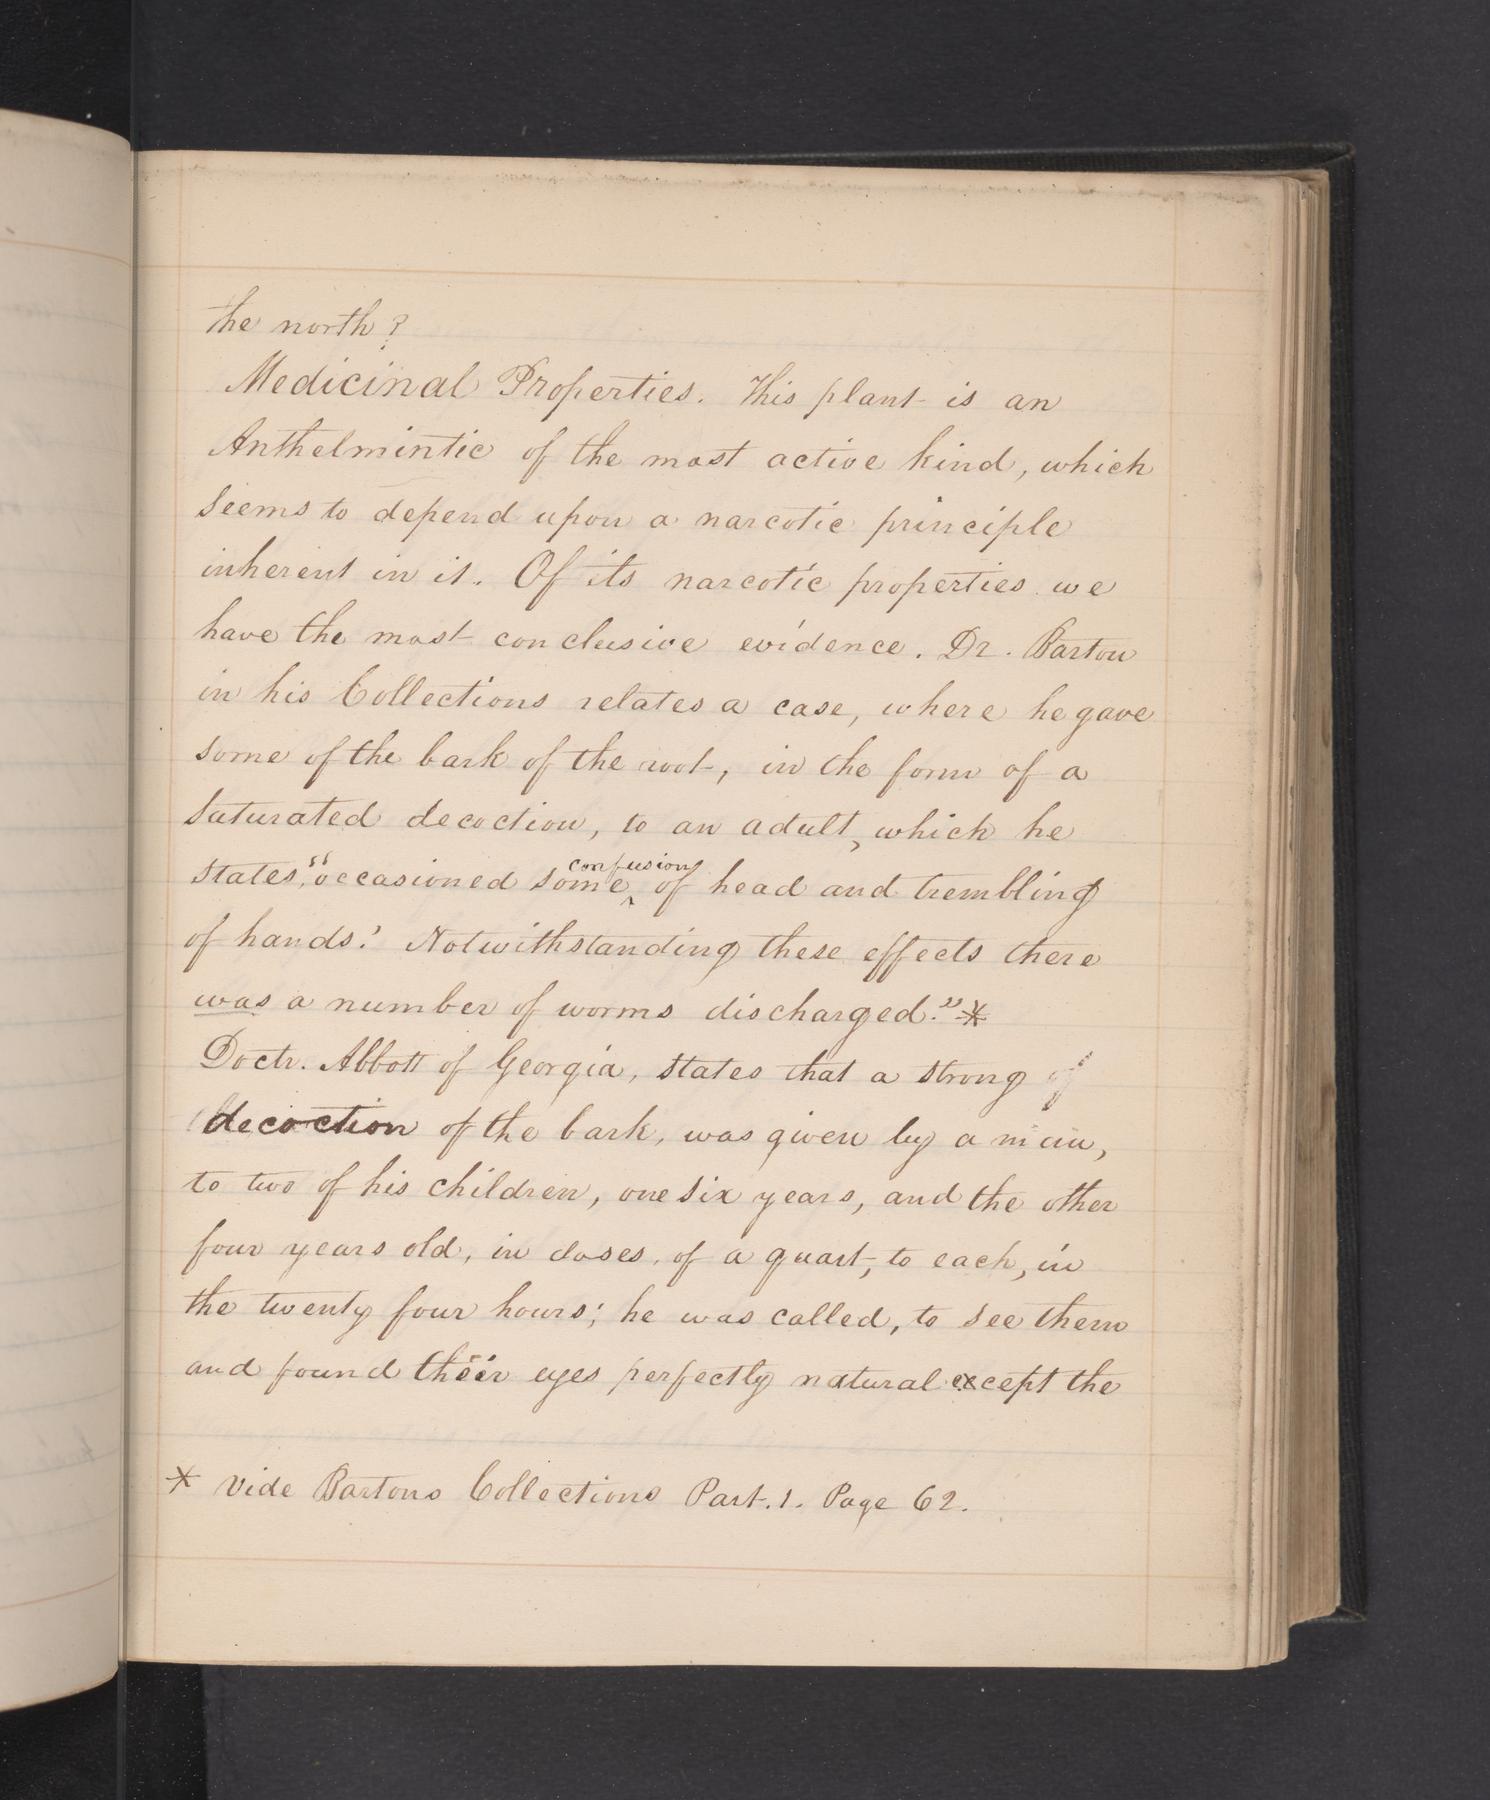 the north?
Medicinal Properties. This plant is an
Anthelmintic of the most active kind, which
seems to depend upon a narcotic principle
inherent in it. Of its narcotic properties we
have the most conclusive evidence. Dr. Barton
in his Collections relates a case, where he gave
some of the bark of the root, in the form of a
saturated decoction, to an adult, which he
states, "occasioned some confusion of head and trembling
of hands.' Notwithstanding these effects there
was a number of worms discharged." *
Doctr. Abbott of Georgia, states that a strong
decoction of the bark, was given by a man,
to two of his children, one six years, and the other
four years old, in doses, of a quart, to each, in
the twenty four hours; he was called, to see them
and found their eyes perfectly natural except the
* Vide Bartons Collections Part. 1. Page 62.